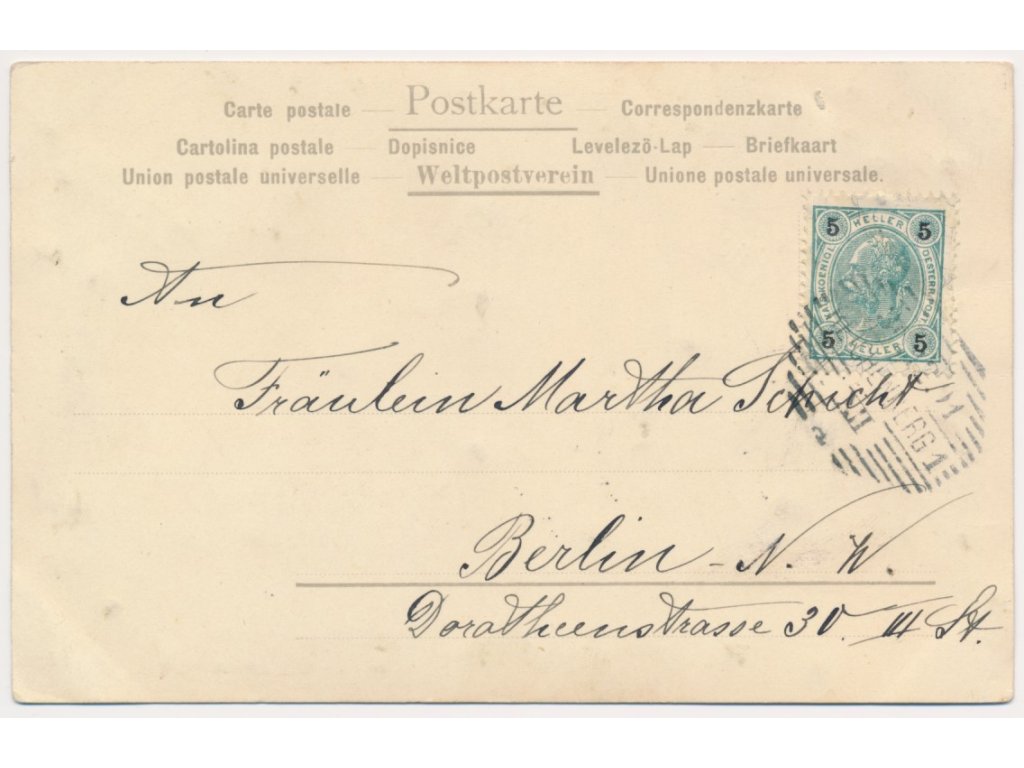 Carte postale — Postkarte — Correspondenzkarte
Cartolina postale — Dopisnice Levelező-Lap — Briefkaart
Union postale universelle — Weltpostverein — Unione postale universale.
5 HELLER 5
KAIS. KOENIGL. OESTERR. POST
5 HELLER 5
BERG 1
An
Fräulein Martha Schicht
Berlin - N. W.
Dorotheenstrasse 30. III St.